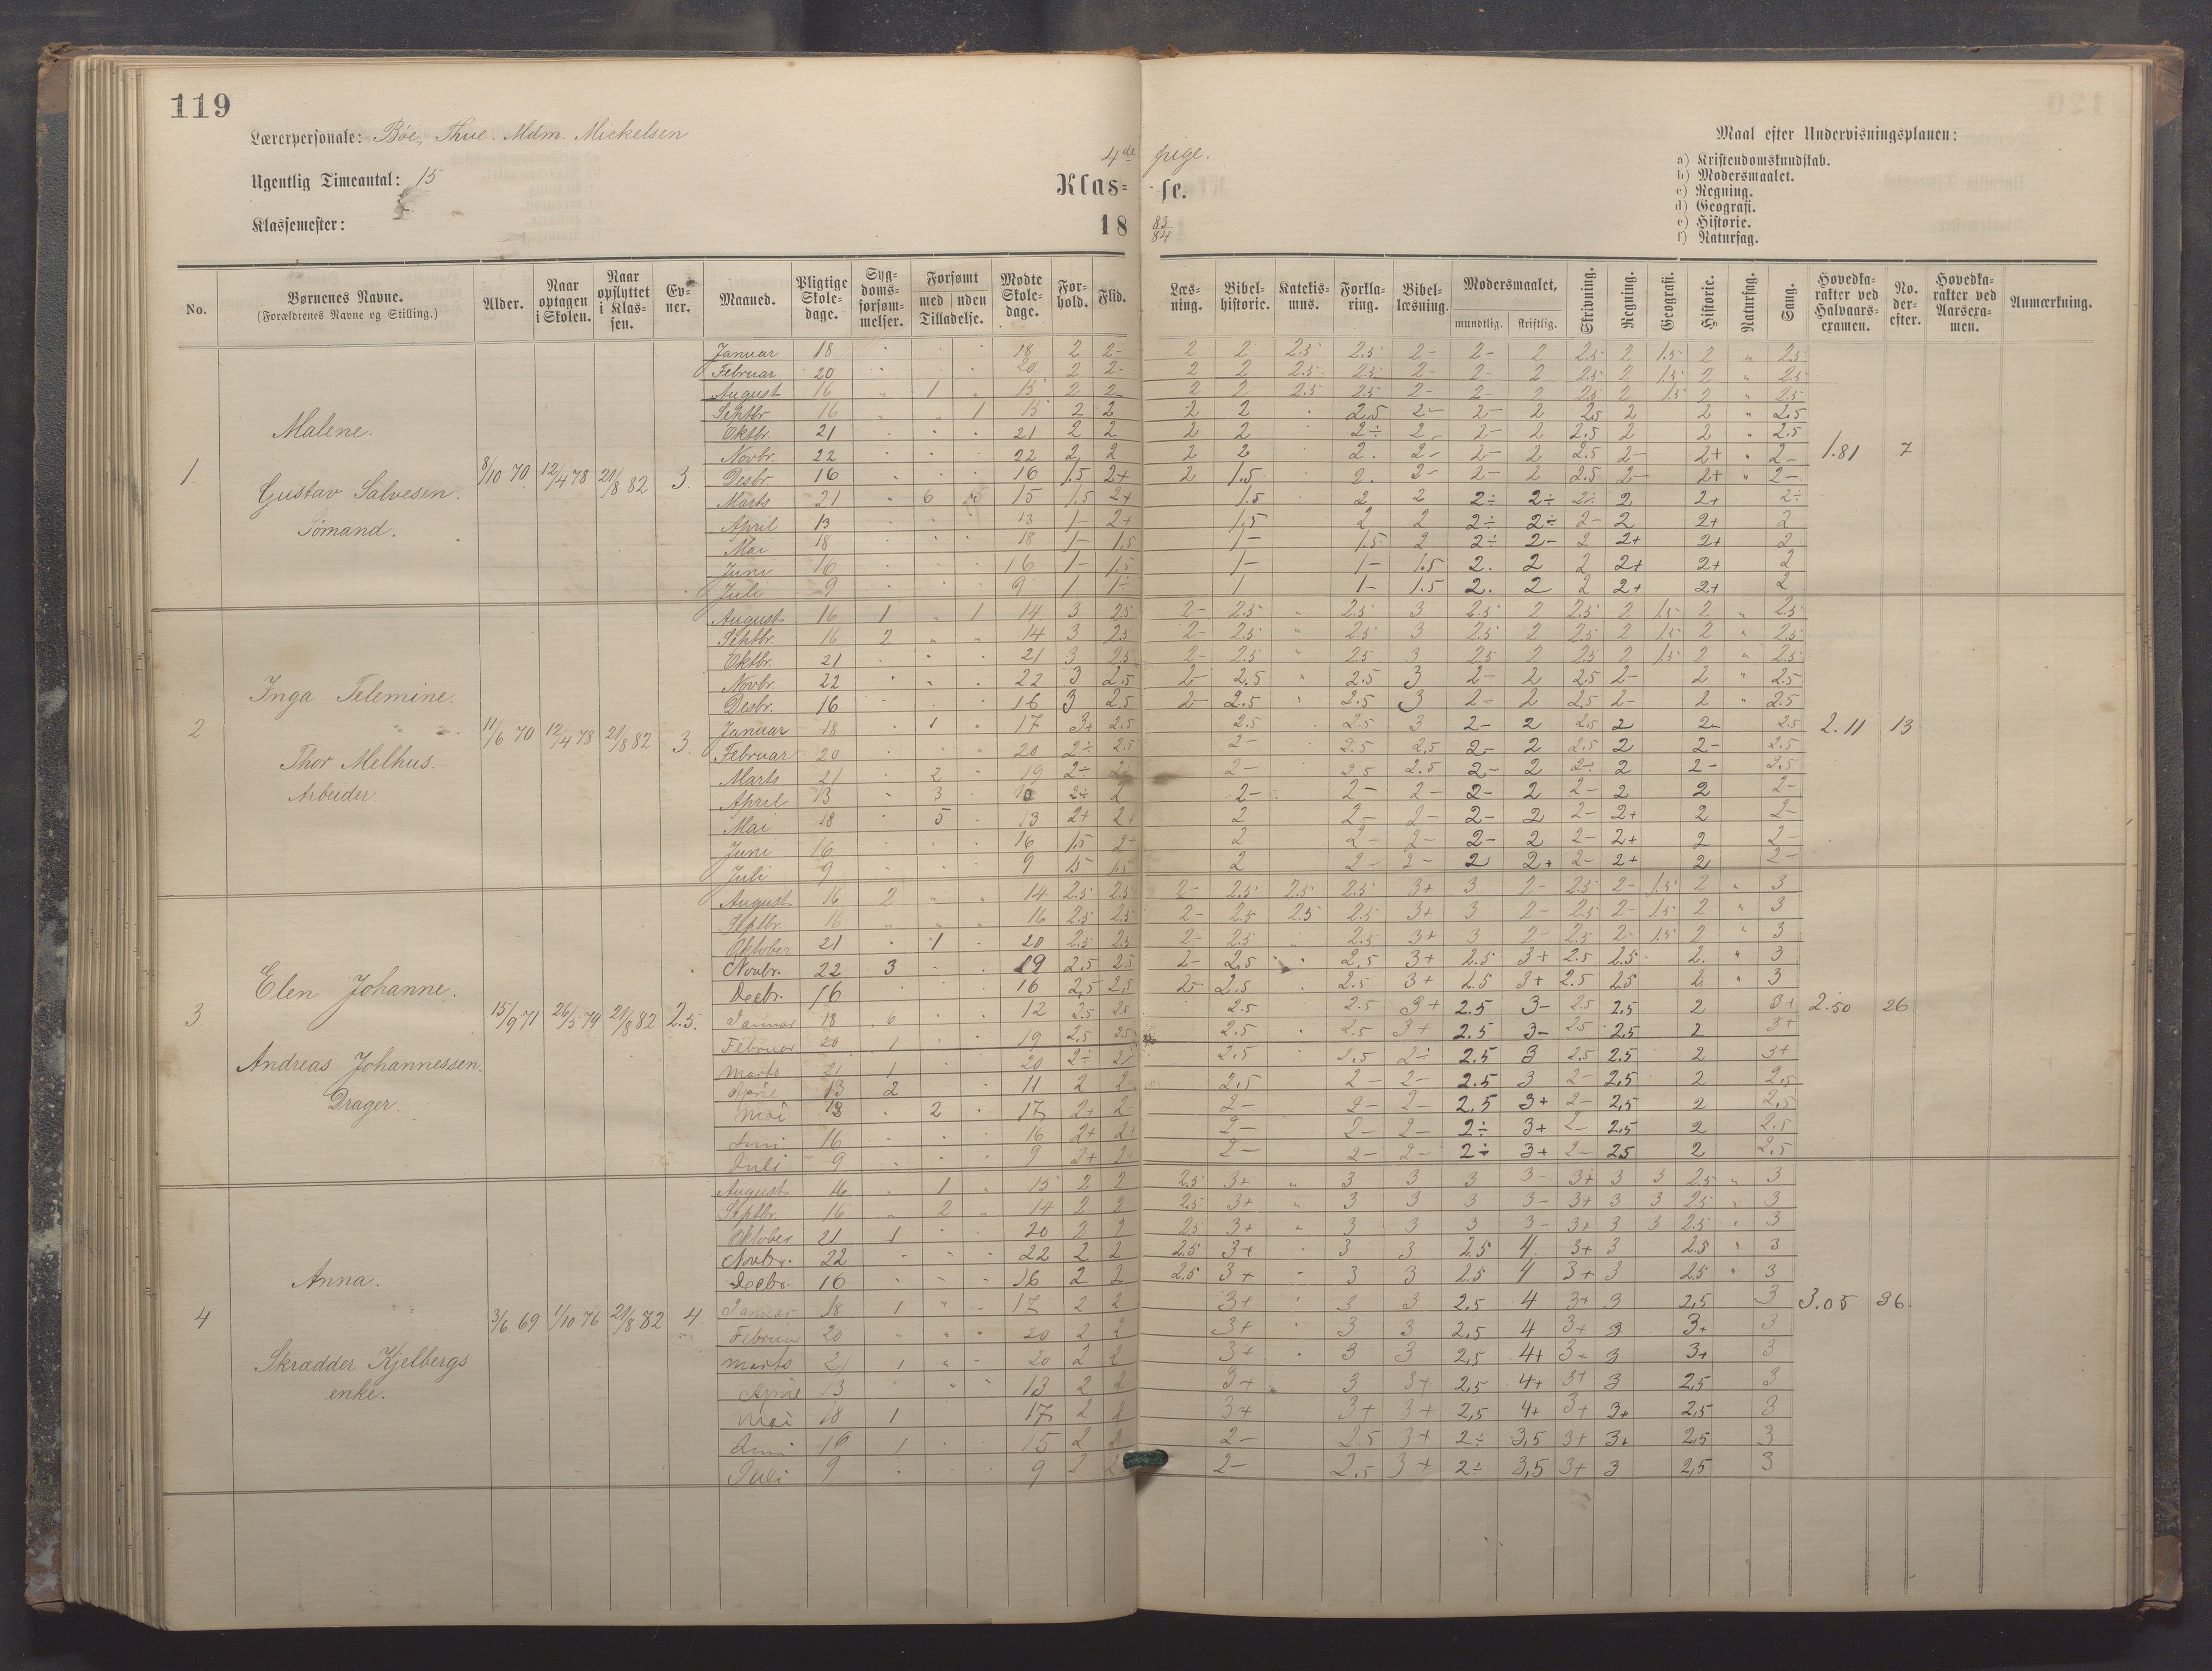 119
Lærerpersonale: Bøe, Thue. Mdm. Mickelsen
Ugentlig Timeantal: 15
Klassemester:
4de pige.
Klas- se.
18 83/84
Maal efter Undervisningsplanen:
a) Kristendomskundskab.
b) Modersmaalet.
c) Regning.
d) Geografi.
e) Historie.
f) Naturfag.
No. Børnenes Navne. (Forældrenes Navne og Stilling.) Alder. Naar optagen i Skolen. Naar opflyttet i Klassen. Evner. Maaned. Pligtige Skoledage. Sygdomsforsømmelser. Forsømt med uden Tilladelse. Mødte Skoledage. Forhold. Flid. Læsning. Bibelhistorie. Katekismus. Forklaring. Bibellæsning. Modersmaalet, mundtlig. skriftlig. Skrivning. Regning. Geografi. Historie. Naturfag. Sang. Hovedkarakter ved Halvaarsexamen. No. derefter. Hovedkarakter ved Aarsexamen. Anmærkning.
1. Malene. Gustav Salvesen. Sømand. 8/10 70 12/4 78 21/8 82 3. 1.81 7
Januar 18 18 2 2- 2 2 2.5 2.5 2- 2- 2 2.5 2 1.5 2 " 2.5
Februar 20 20 2 2- 2 2 2.5 2.5 2- 2- 2 2.5 2 1.5 2 " 2.5
August 16 " 1 " 15 2 2- 2 2 2.5 2.5 2- 2- 2 2.5 2 1.5 2 " 2.5
Septbr. 16 " " 1 15 2 2 2 2 2.5 2- 2- 2 2.5 2 2 " 2.5
Oktbr. 21 21 2 2 2 2 2÷ 2- 2- 2 2.5 2 2 " 2.5
Novbr. 22 22 2 2 2 2 2. 2- 2- 2 2.5 2- 2+ " 2-
Desbr. 16 16 1.5 2+ 2 1.5 2. 2- 2- 2 2.5 2- 2+ " 2-
Marts 21 6 15 1.5 2+ 1.5 2 2 2÷ 2÷ 2÷ 2 2+ 2÷
April 13 13 1- 2+ 1.5 2 2 2÷ 2÷ 2- 2 2+ 2
Mai 18 18 1- 1.5 1- 1.5 2 2÷ 2- 2 2+ 2+ 2
Juni 16 16 1- 1.5 1- 1- 1.5 2. 2 2 2+ 2+ 2
Juli 9 9 1 1÷ 1 1- 1.5 2. 2 2 2+ 2+ 2
2 Inga Telemine. Thor Melhus. Arbeider. 11/6 70 12/4 78 21/8 82 3. 2.11 13
August 16 1 " 1 14 3 2.5 2- 2.5 " 2.5 3 2.5 2 2.5 2 1.5 2 " 2.5
Septbr. 16 2 " " 14 3 2.5 2- 2.5 " 2.5 3 2.5 2 2.5 2 1.5 2 " 2.5
Oktbr. 21 21 3 2.5 2- 2.5 " 2.5 3 2.5 2 2.5 2 1.5 2 " 2.5
Novbr. 22 22 3 2.5 2- 2.5 " 2.5 3 2- 2 2.5 2- 2 " 2.5
Desbr. 16 16 3 2.5 2- 2.5 " 2.5 3 2- 2 2.5 2- 2 " 2.5
Januar 18 1 17 3+ 2.5 2.5 2.5 3 2- 2 2.5 2 2- 2.5
Februar 20 20 2÷ 2.5 2- 2.5 2.5 2- 2 2.5 2 2- 2.5
Marts 21 2 19 2÷ 2- 2.5 2.5 2- 2 2÷ 2 2- 2.5
April 13 3 10 2÷ 2 2- 2- 2- 2- 2 2- 2 2 2-
Mai 18 5 13 2+ 2+ 2 2- 2- 2- 2 2- 2+ 2 2-
Juni 16 16 1.5 2+ 2 2- 2- 2- 2 2- 2+ 2 2-
Juli 9 9 1.5 1.5 2 2- 2- 2 2+ 2- 2+ 2 2-
3. Elen Johanne. Andreas Johannessen. Drager. 15/9 71 26/5 79 21/8 82 2.5. 2.50 26
August 16 2 " " 14 2.5 2.5 2- 2.5 2.5 2.5 3+ 3 2- 2.5 2- 1.5 2 " 3
Septbr. 16 " " " 16 2.5 2.5 2- 2.5 2.5 2.5 3+ 3 2- 2.5 2- 1.5 2 " 3
Oktober 21 1 20 2.5 2.5 2- 2.5 2.5 3+ 3 2- 2.5 2- 1.5 2 " 3
Novbr. 22 3 19 2.5 2.5 2- 2.5 2.5 3+ 2.5 3+ 2.5 2.5 2. " 3
Decbr. 16 16 2.5 2.5 2- 2.5 2.5 3+ 2.5 3+ 2.5 2.5 2 " 3
Januar 18 6 12 2.5 2.5 2.5 2.5 3+ 2.5 3- 2.5 2.5 2 3+
Februar 20 1 19 2.5 2.5 2.5 2.5 3+ 2.5 3- 2.5 2.5 2 3+
Marts 21 1 20 2÷ 2.5 2.5 2÷ 2.5 3 2.5 2.5 2 3+
April 13 2 11 2 2 2.5 2- 2- 2.5 3 2- 2.5 2 2.5
Mai 18 2 17 2+ 2- 2- 2- 2- 2.5 3+ 2- 2.5 2 2.5
Juni 16 16 2+ 2+ 2- 2- 2- 2÷ 3+ 2- 2.5 2 2.5
Juli 9 9 2+ 2+ 2- 2- 2- 2÷ 3+ 2- 2.5 2 2.5
4 Anna. Skrædder Kjelbergs enke. 3/6 69 1/10 76 21/8 82 4. 3.05 36.
August 16 1 " 15 2 2 2.5 3+ " 3 3 3 3- 3+ 3 3 2.5 " 3
Septbr. 16 " 2 " 14 2 2 2.5 3+ " 3 3 3 3- 3+ 3 3 2.5 " 3
Oktober 21 1 20 2 2 2.5 3+ " 3 3 3 3- 3+ 3 3 2.5 " 3
Novbr. 22 22 2 2 2.5 3+ 3 3 2.5 4. 3+ 3 2.5 " 3
Decbr. 16 16 2 2 2.5 3+ 3 3 2.5 4 3+ 3 2.5 " 3
Januar 18 1 17 2 2 3+ 3 3 2.5 4 3+ 3 2.5 3
Februar 20 20 2 2 3+ 3 3 2.5 4 3+ 3 3+ 3
Marts 21 1 20 2 2 3+ 3 3 2.5 4+ 3+ 3 3+ 3
April 13 13 2 2 3+ 3 3+ 2.5 4+ 3+ 3 2.5 3
Mai 18 1 17 2 2 3+ 3+ 3+ 2.5 4+ 3+ 3+ 2.5 3
Juni 16 1 15 2 2 2- 2.5 3+ 2÷ 3.5 3+ 3+ 2.5 3
Juli 9 9 2 2 2- 2.5 3+ 2÷ 3.5 3+ 3 2.5 3